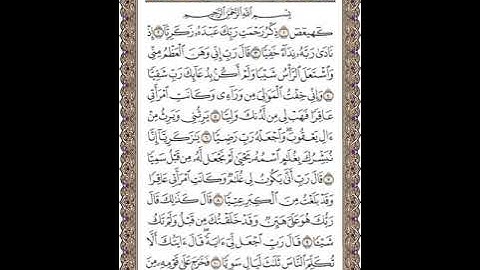 بِسْمِ اللَّهِ الرَّحْمَٰنِ الرَّحِيمِ
كٓهيعٓصٓ ١ ذِكْرُ رَحْمَتِ رَبِّكَ عَبْدَهُۥ زَكَرِيَّآ ٢ إِذْ
نَادَىٰ رَبَّهُۥ نِدَآءً خَفِيًّا ٣ قَالَ رَبِّ إِنِّى وَهَنَ ٱلْعَظْمُ مِنِّى
وَٱشْتَعَلَ ٱلرَّأْسُ شَيْبًا وَلَمْ أَكُنۢ بِدُعَآئِكَ رَبِّ شَقِيًّا
٤ وَإِنِّى خِفْتُ ٱلْمَوَٰلِىَ مِن وَرَآءِى وَكَانَتِ ٱمْرَأَتِى
عَاقِرًا فَهَبْ لِى مِن لَّدُنكَ وَلِيًّا ٥ يَرِثُنِى وَيَرِثُ مِنْ
ءَالِ يَعْقُوبَ ۖ وَٱجْعَلْهُ رَبِّ رَضِيًّا ٦ يَٰزَكَرِيَّآ إِنَّا
نُبَشِّرُكَ بِغُلَٰمٍ ٱسْمُهُۥ يَحْيَىٰ لَمْ نَجْعَل لَّهُۥ مِن قَبْلُ سَمِيًّا
٧ قَالَ رَبِّ أَنَّىٰ يَكُونُ لِى غُلَٰمٌ وَكَانَتِ ٱمْرَأَتِى عَاقِرًا
وَقَدْ بَلَغْتُ مِنَ ٱلْكِبَرِ عِتِيًّا ٨ قَالَ كَذَٰلِكَ قَالَ
رَبُّكَ هُوَ عَلَىَّ هَيِّنٌ وَقَدْ خَلَقْتُكَ مِن قَبْلُ وَلَمْ تَكُ
شَيْـًٔا ٩ قَالَ رَبِّ ٱجْعَل لِّىٓ ءَايَةً ۚ قَالَ ءَايَتُكَ أَلَّا
تُكَلِّمَ ٱلنَّاسَ ثَلَٰثَ لَيَالٍ سَوِيًّا ١٠ فَخَرَجَ عَلَىٰ قَوْمِهِۦ مِنَ